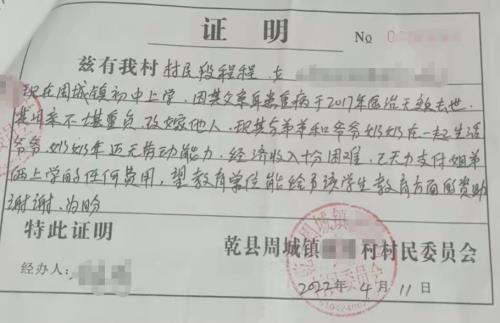 证明
No 0
兹有我村 村民段程程，女
现在周城镇初中上学，因其父亲身患重病于2017年医治无效去世，
其母亲不堪重负，改嫁他人，现其与弟弟和爷爷奶奶在一起生活
爷爷奶奶年迈无劳动能力，经济收入十分困难，已无力支付她姐弟
俩上学的任何费用，望教育单位能给予该学生教育方面的资助
谢谢。为盼
特此证明
乾县周城镇 村村民委员会
经办人：
2022年4月11日